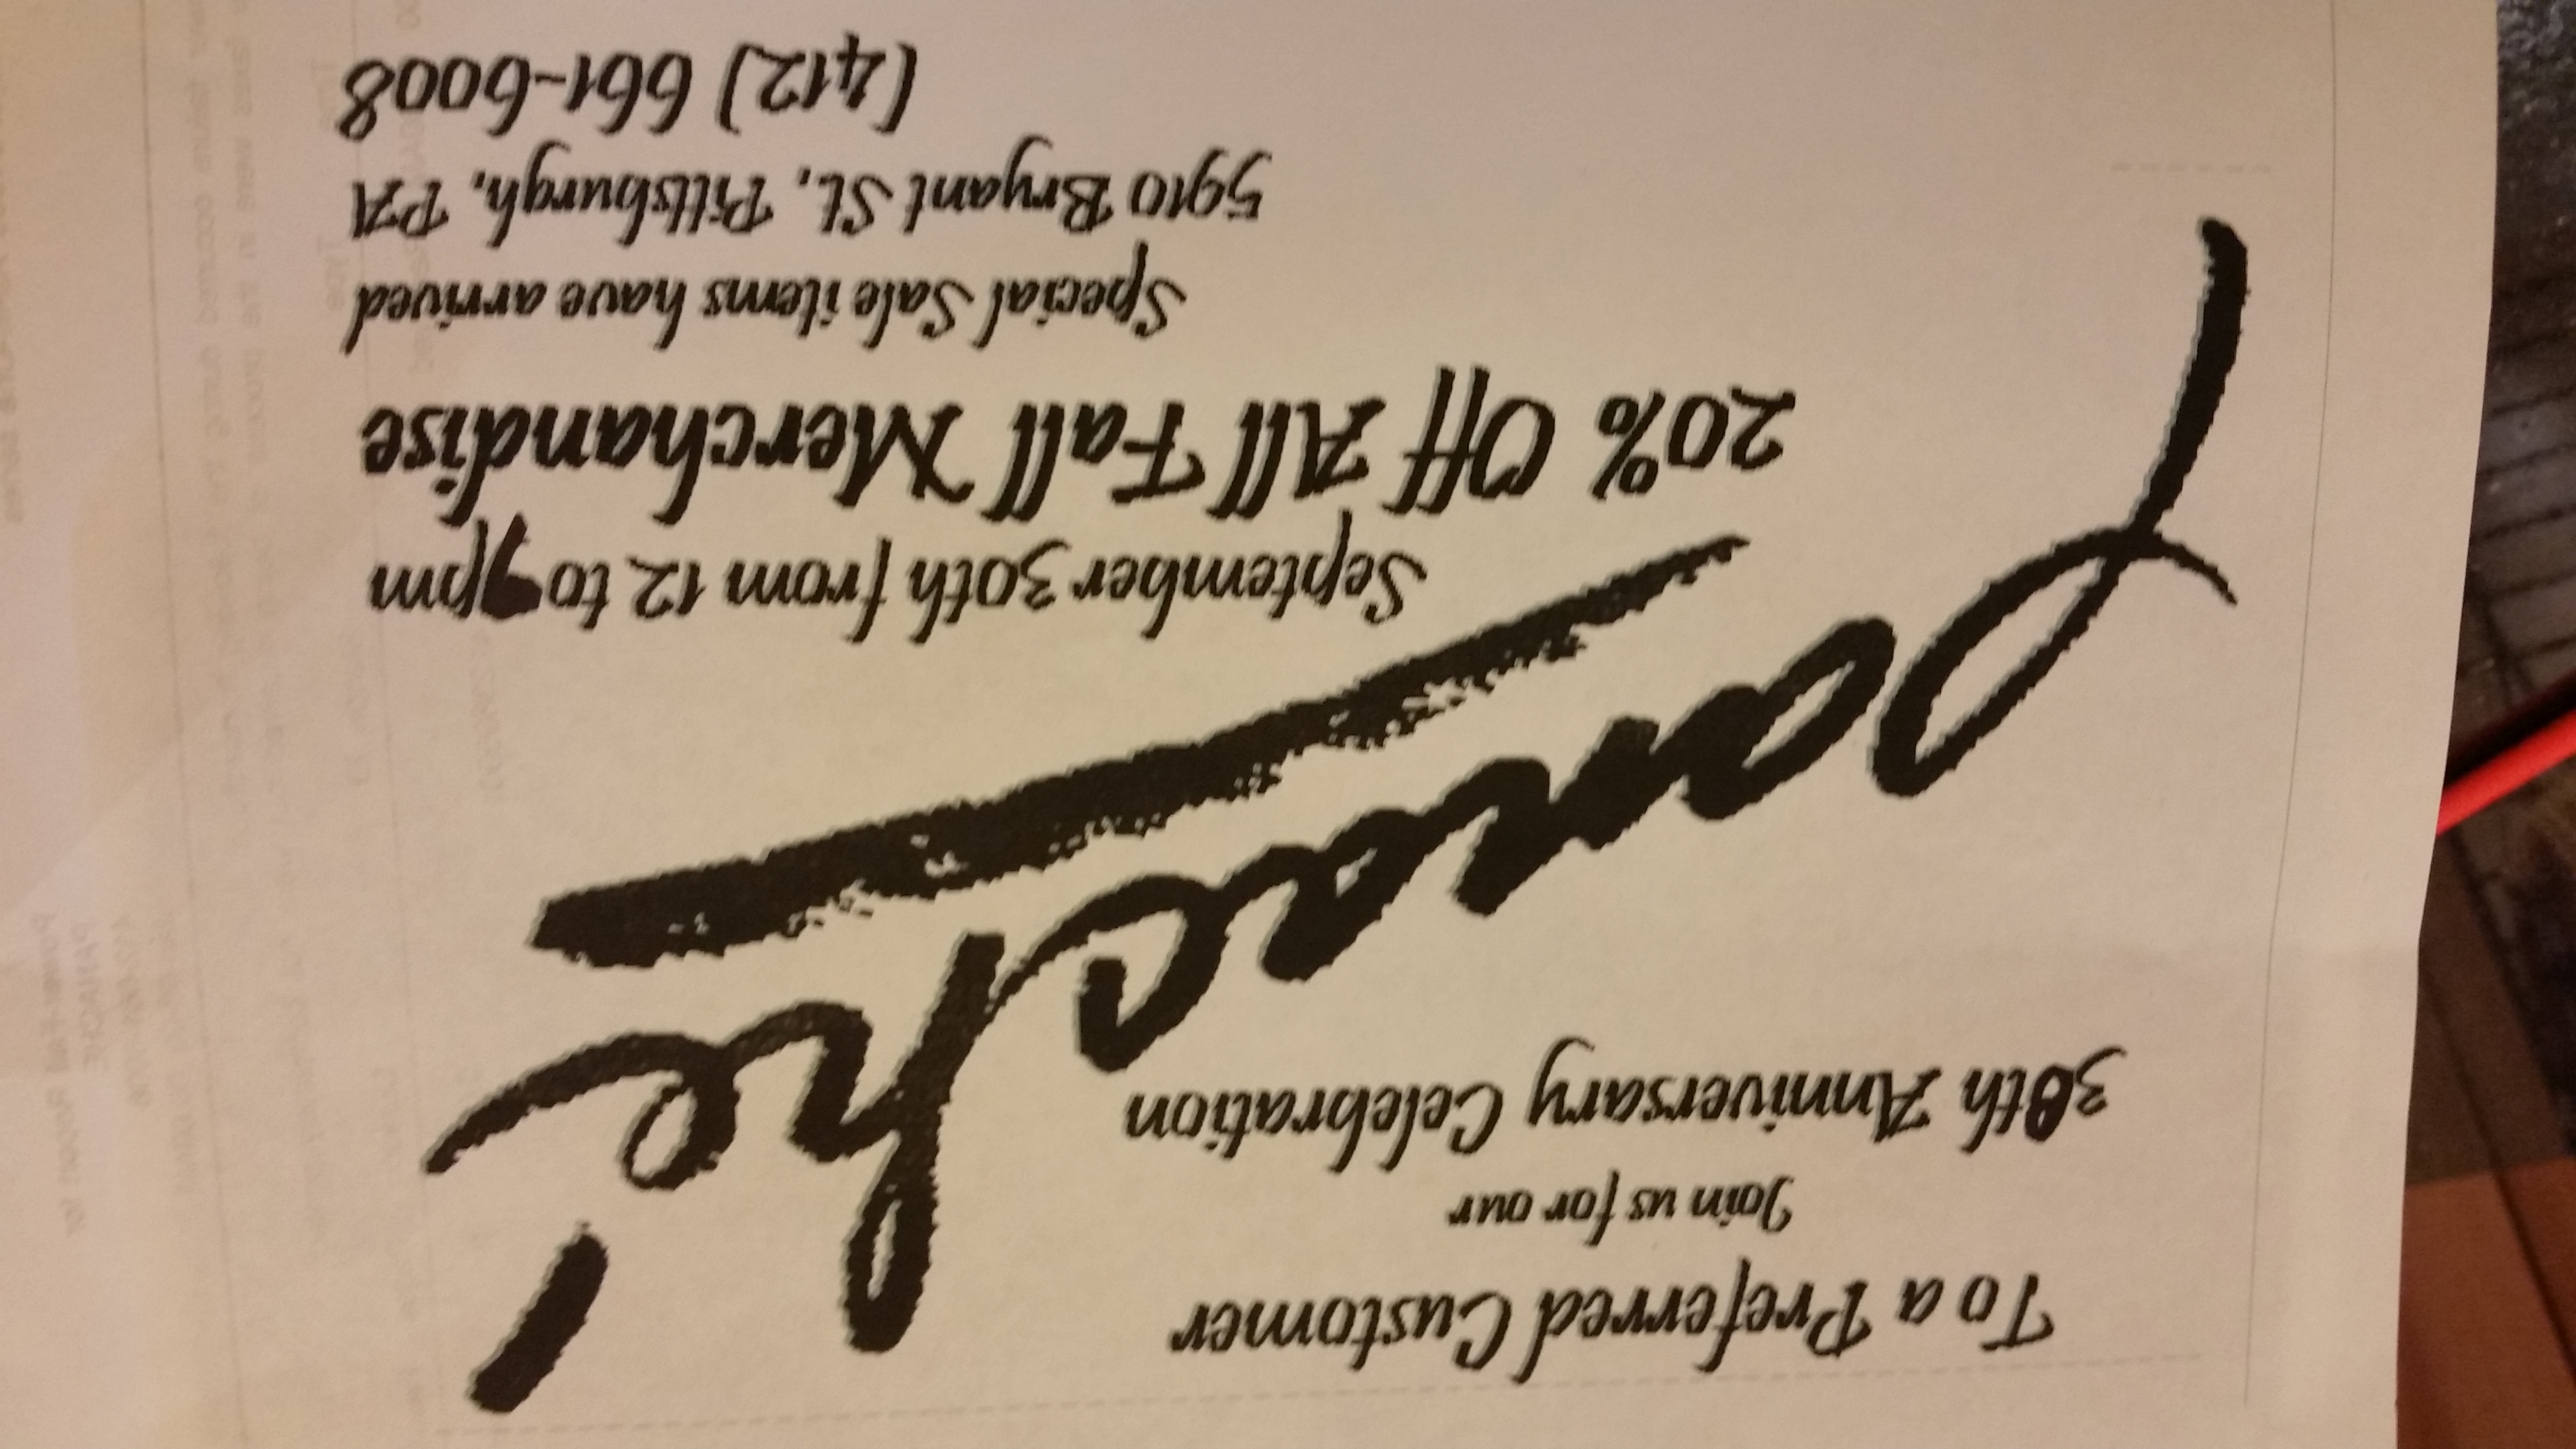 To a Preferred Customer
Join us for our
38th Anniversary Celebration
Panaché
September 30th from 12 to pm
20% Off All Fall Merchandise
Special Sale items have arrived
5910 Bryant St, Pittsburgh, PA
(412) 661-6008